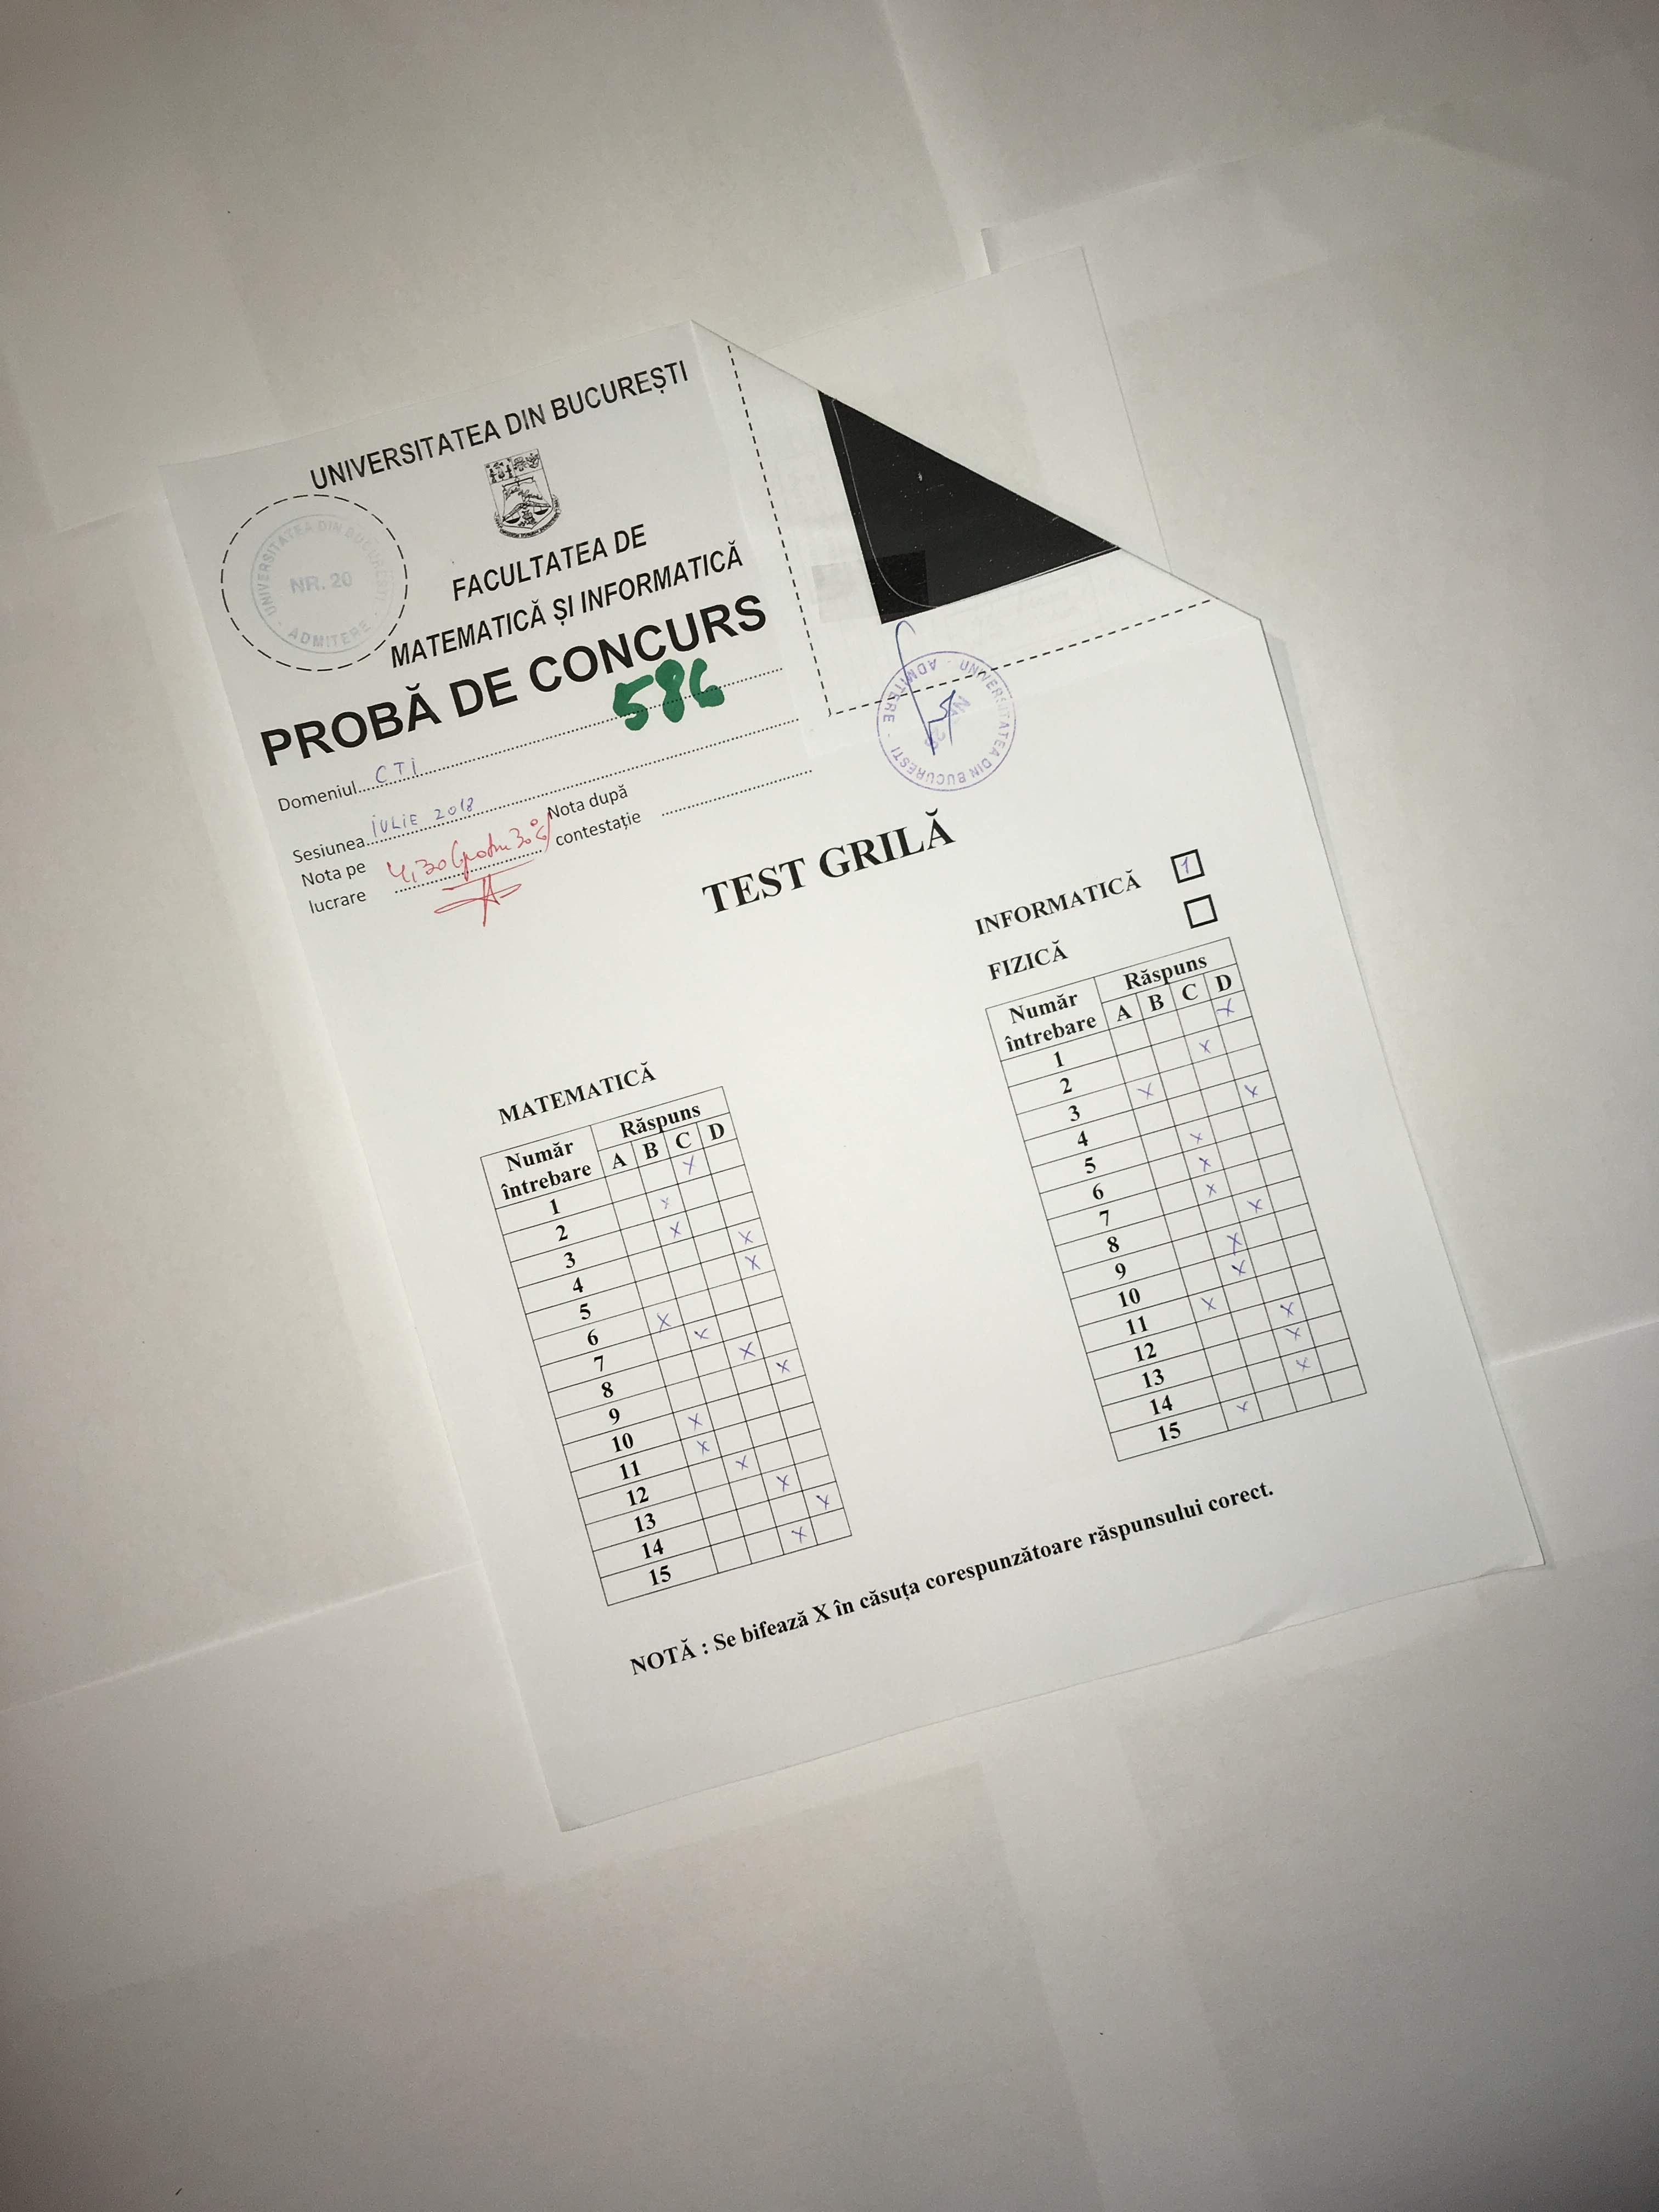 UNIVERSITATEA DIN BUCUREȘTI
UNIVERSITATEA DIN BUCUREȘTI · ADMITERE ·
NR. 20
FACULTATEA DE
MATEMATICĂ ȘI INFORMATICĂ
PROBĂ DE CONCURS
586
Domeniul CTI
Sesiunea IULIE 2018
Nota pe lucrare 4,30 (patru 30%)
Nota după contestație
UNIVERSITATEA DIN BUCUREȘTI · ADMITERE ·
TEST GRILĂ
INFORMATICĂ 1
FIZICĂ
MATEMATICĂ
Număr întrebare Răspuns
A B C D
1 X
2 X
3 X
4 X
5 X
6 X
7 X
8 X
9 X
10 X
11 X
12 X
13 X
14 X
15 X
Număr întrebare Răspuns
A B C D
1 X
2 X
3 X
4 X
5 X
6 X
7 X
8 X
9 X
10 X
11 X
12 X
13 X
14 X
15 X
NOTĂ : Se bifează X în căsuța corespunzătoare răspunsului corect.